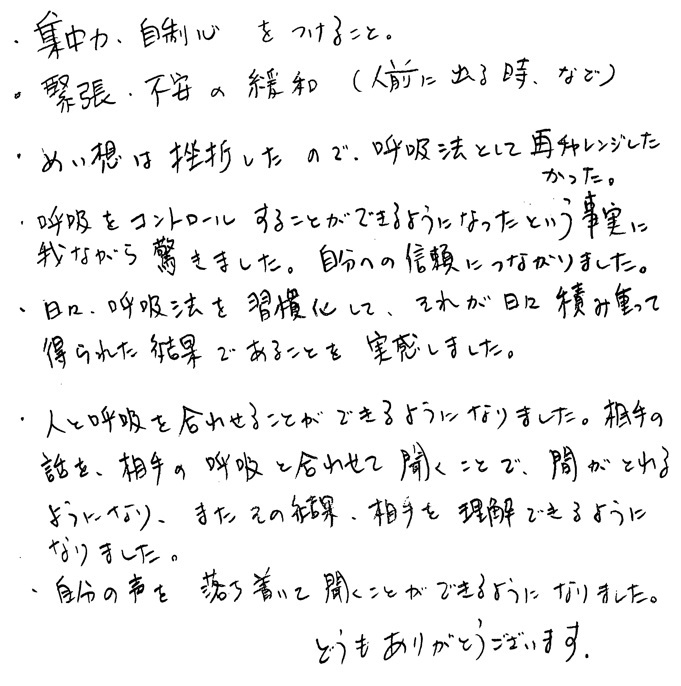 ・集中力、自制心 をつけること。
・緊張・不安の緩和 (人前に出る時、など)
・めい想は挫折したので、呼吸法として再チャレンジした
かった。
・呼吸をコントロールすることができるようになったという事実に
我ながら驚きました。自分への信頼につながりました。
・日々、呼吸法を習慣化して、それが日々積み重って
得られた結果であることを実感しました。
・人と呼吸を合わせることができるようになりました。相手の
話を、相手の呼吸と合わせて聞くことで、間がとれる
ようになり、またその結果、相手を理解できるように
なりました。
・自分の声を落ち着いて聞くことができるようになりました。
どうもありがとうございます.